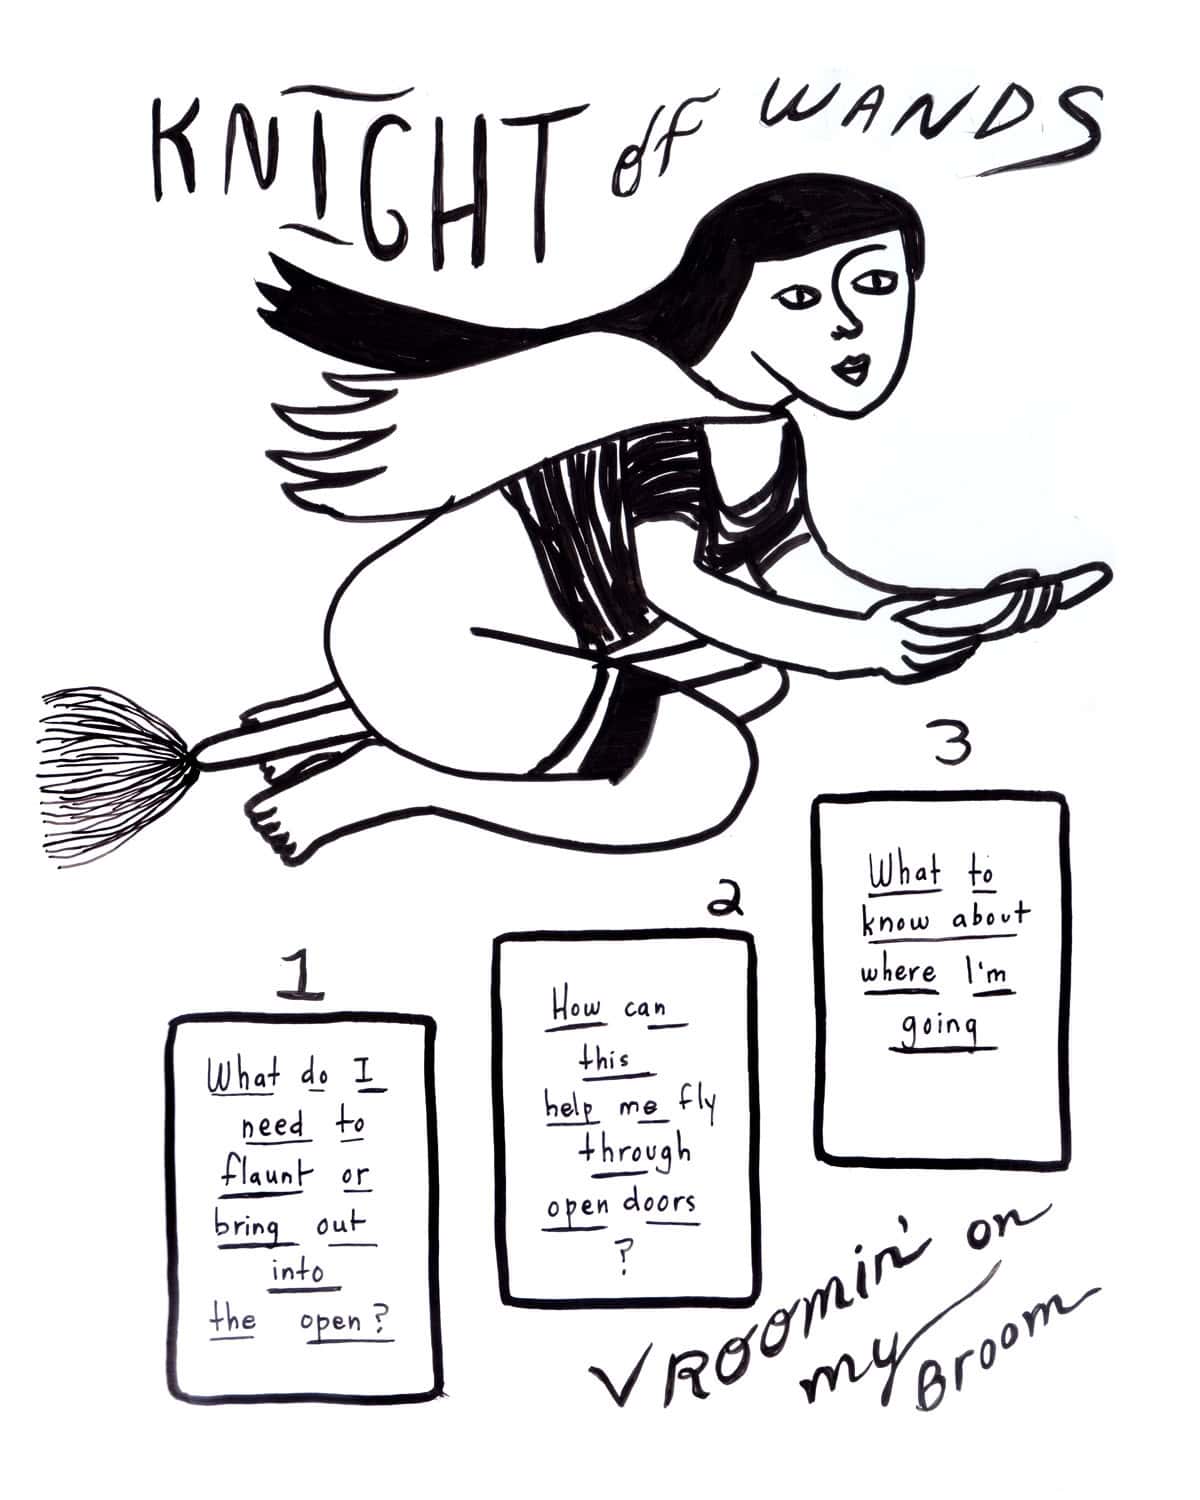 KNIGHT of WANDS
1
What do I
need to
flaunt or
bring out
into
the open?
2
How can
this
help me fly
through
open doors
?
3
What to
know about
where I'm
going
VROOMIN' on
my Broom